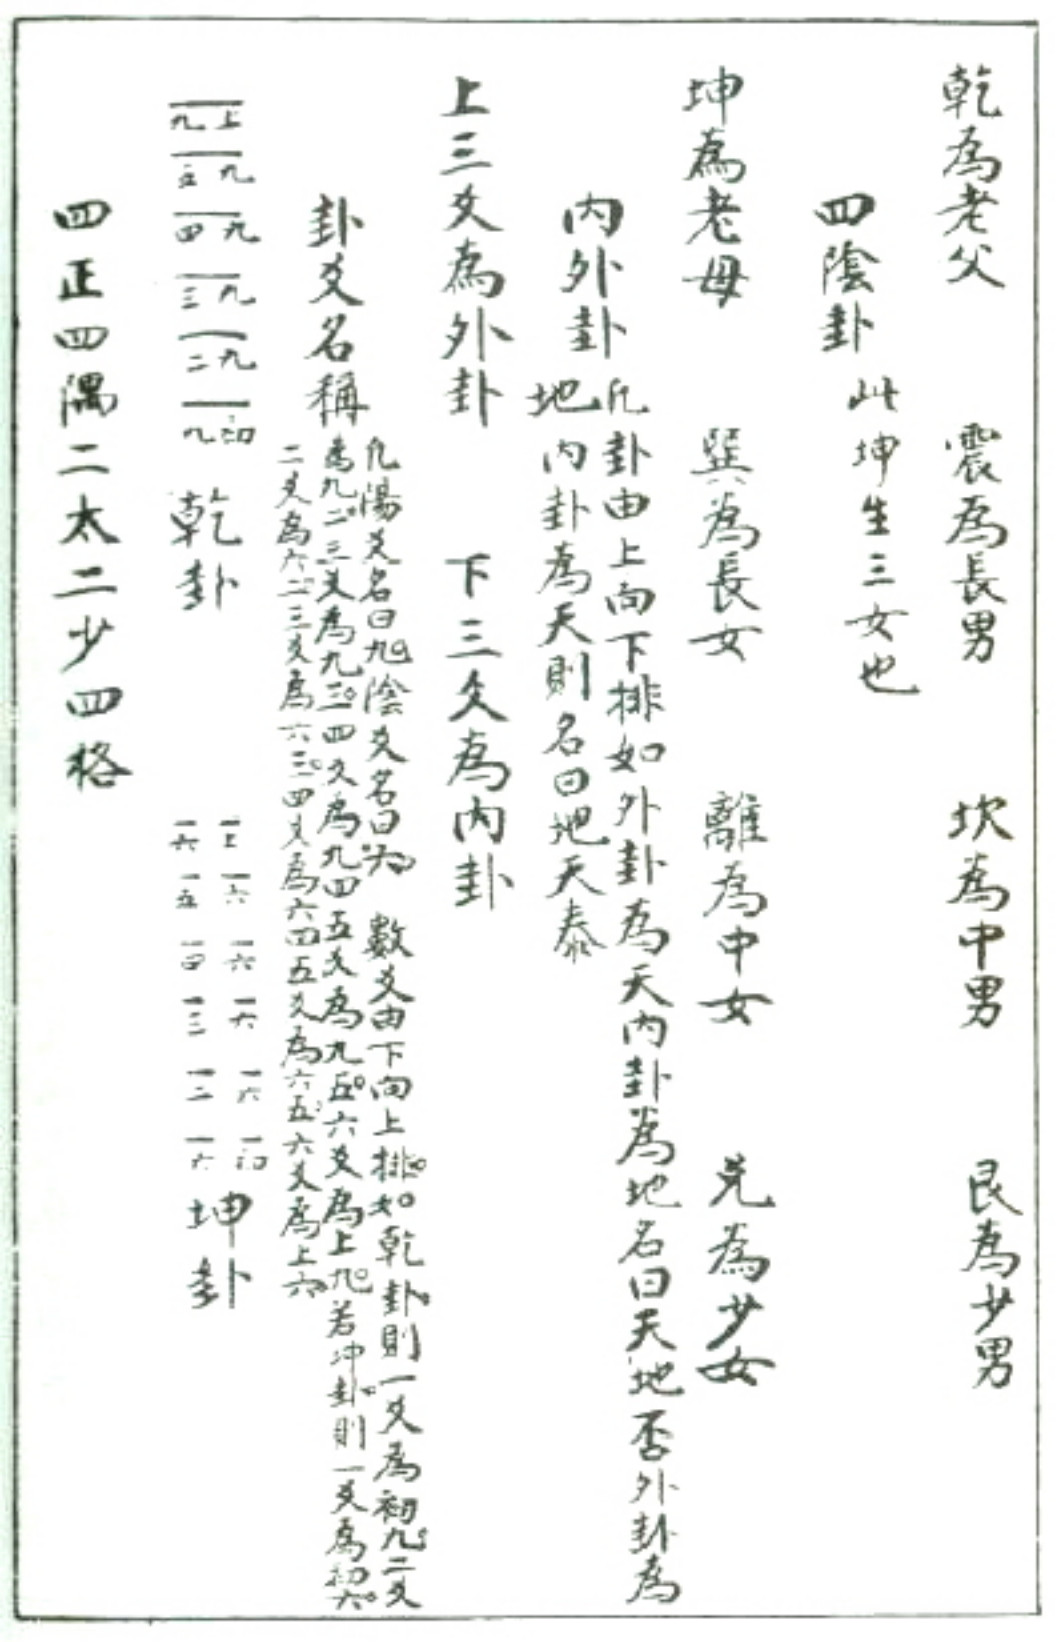 乾為老父　震為長男　坎為中男　艮為少男
四陰卦　此坤生三女也
坤為老母　巽為長女　離為中女　兑為少女
內外卦
凡卦由上向下排如外卦為天內卦為地名曰天地否外卦為
地內卦為天則名曰地天泰
上三爻為外卦　下三爻為內卦
卦爻名稱
凡陽爻名曰九。陰爻名曰六。數爻由下向上排。如。乾卦。則一爻為初九。二爻
為九二。三爻為九三。四爻為九四五爻為九五。六爻為上九。若坤卦。則一爻為初六。
二爻為六二。三爻為六三。四爻為六四五爻為六五。六爻為上六。
上九
九五
九四
九三
九二
初九
乾卦
上六
六五
六四
六三
六二
初六
坤卦
四正四隅二太二少四格